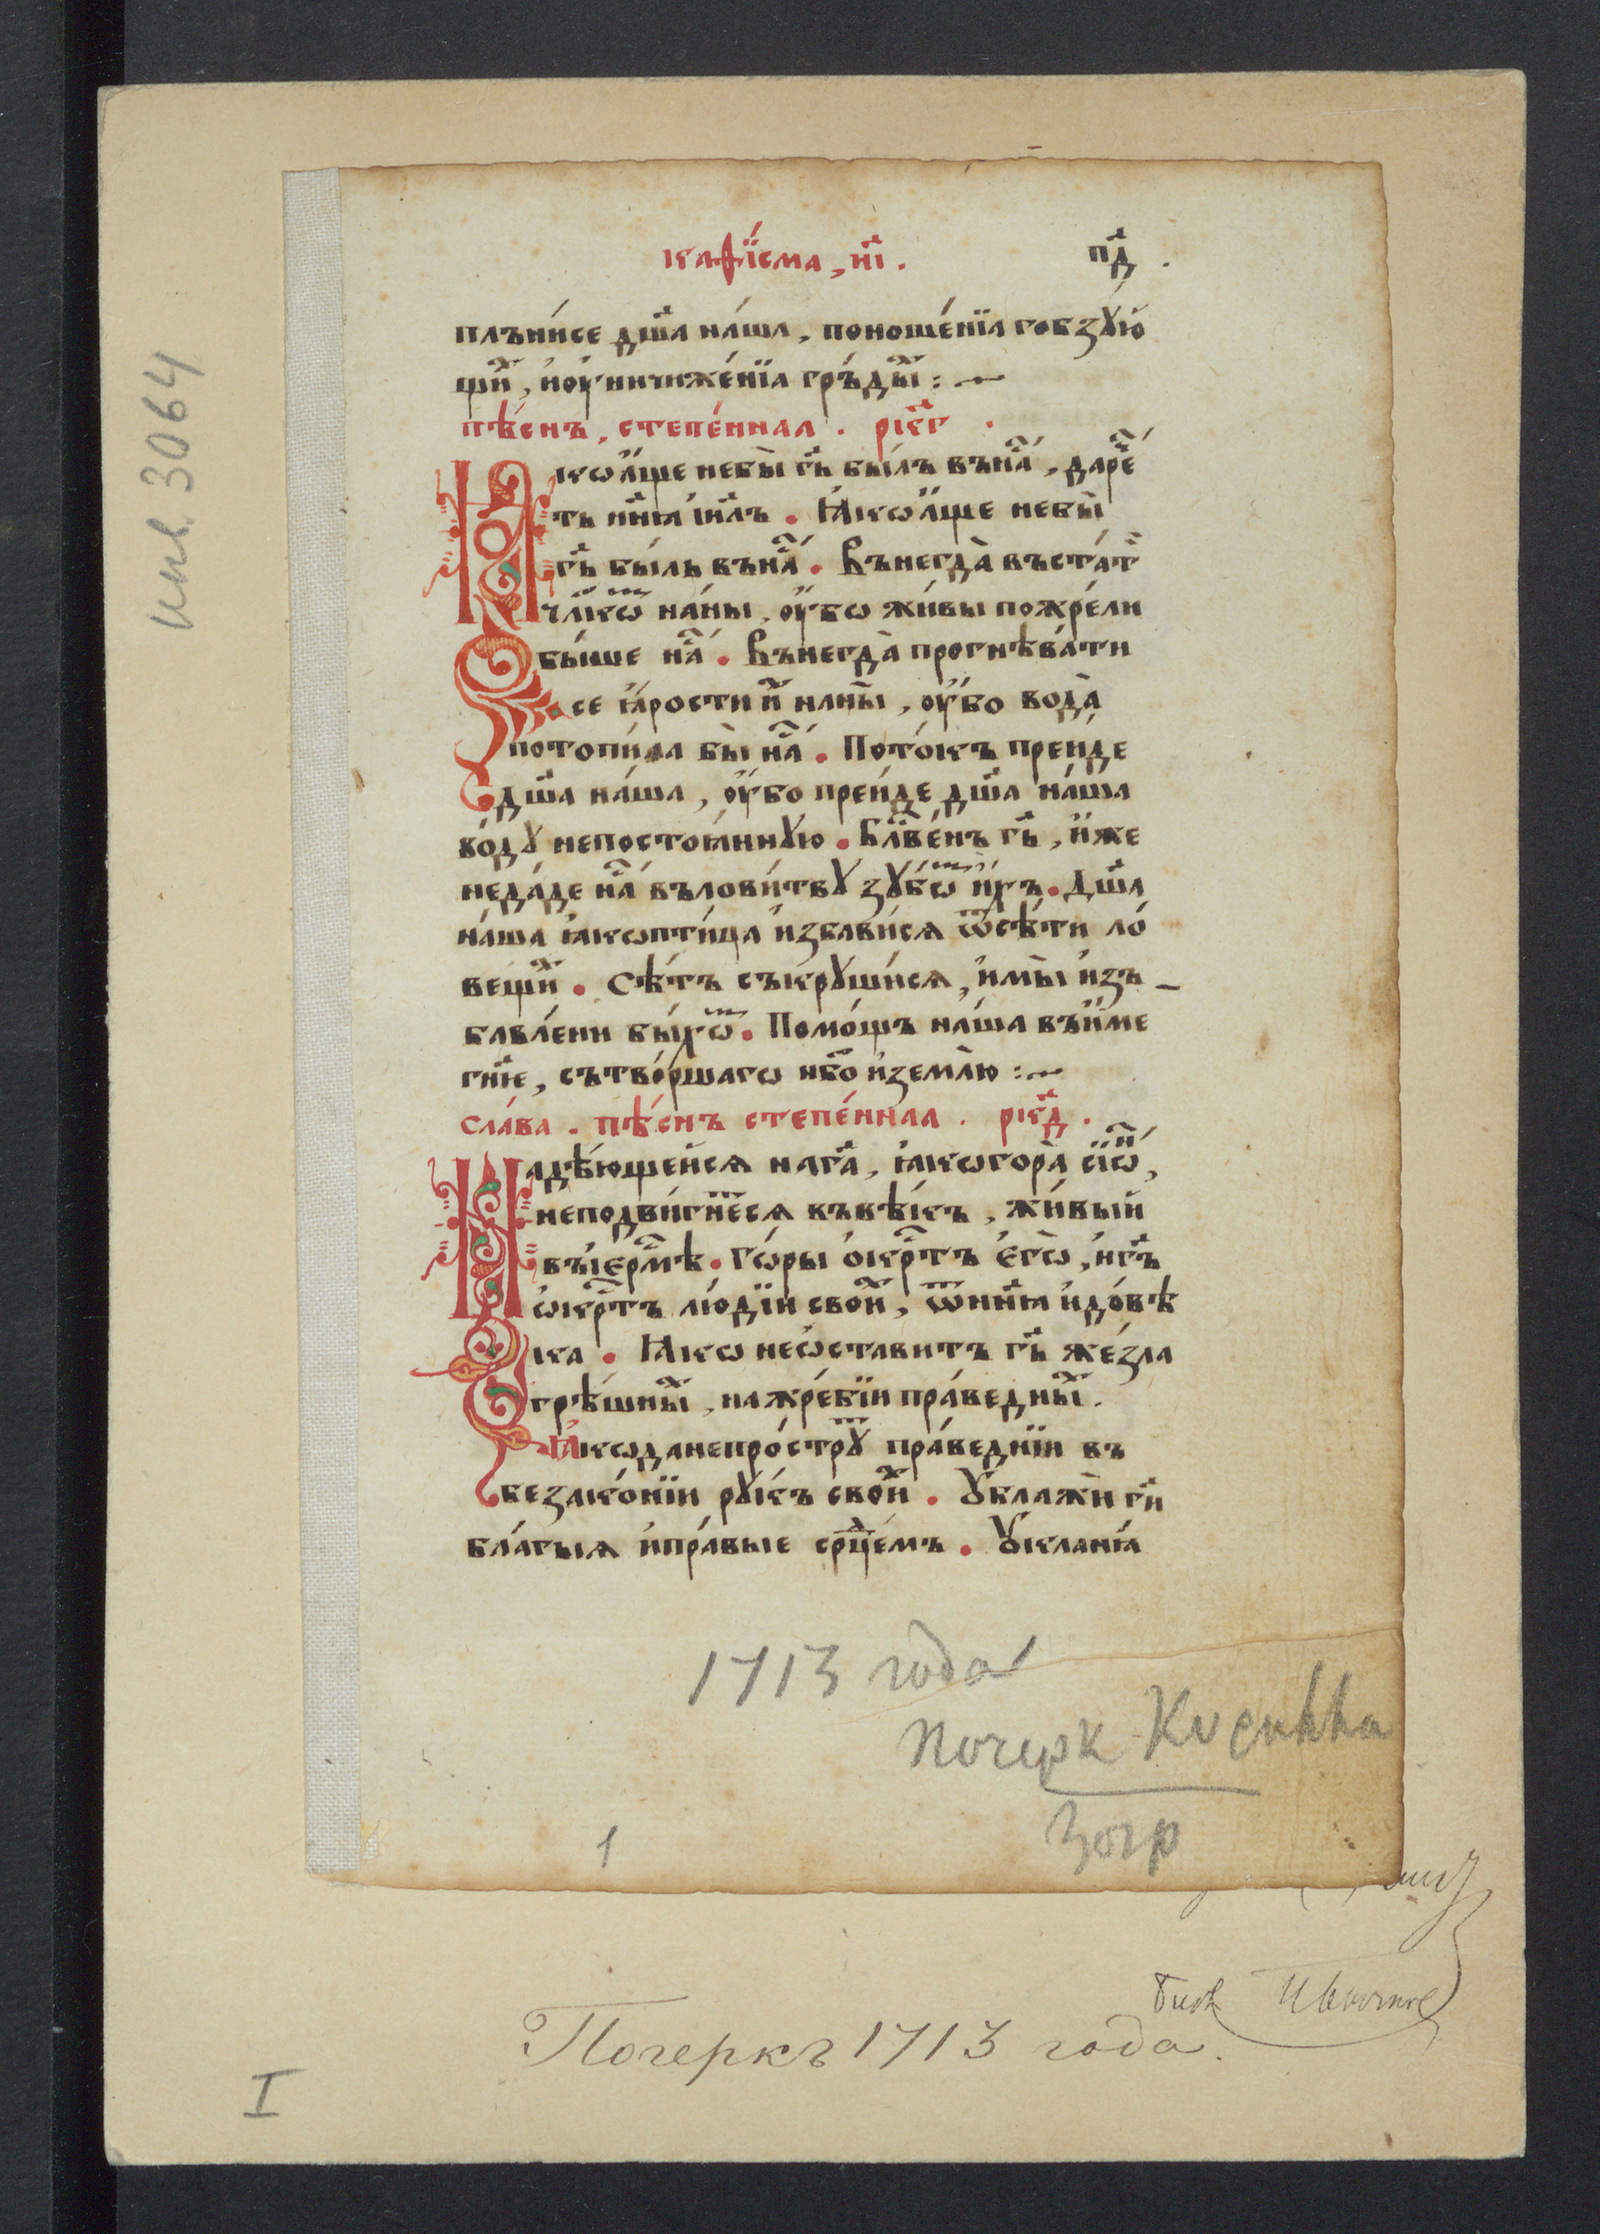 инв. 3064
каѳі́сма, и҃і. п҃д.
плъни́се дш҃а на́ша, поноше́нїа гобзꙋю́
щиⷯ, и҆оу҆ничиже́нїа гръ́дыⷯ :~
пѣ́снъ, степе́ннаа. рк҃г.
Ꙗкѡ а҆́ще небы̀ гь҃ бы́лъ въна́ⷭ, даре́ⷱ
ть нн҃ꙗ і҆и҃лъ. Ꙗ҆́кѡ а҆́ще небы̀
гь҃ бы́ль въна́ⷭ. Вънегда̀ въста́тⷩ
чл҃кѡⷨ на́ны, оу҆́бѡ жи́вы пожре́ли
бы́ше на́ⷭ. Вънегда̀ прогнѣва́ти
се ꙗ҆́рости иⷯ наны̀, оу҆́бо вода̀
потопи́ла бы̀ на́ⷭ. Пото́къ преиде
дш҃а на́ша, оу҆́бо преи́де дш҃а на́ша
во́дꙋ непостоꙗ́ннꙋю. Бл҃ве́нъ гь҃, и҆́же
неда́де на́ⷭ въловиⷮ́твꙋ зꙋбѡⷨ и҆́хъ. Дш҃а
на́ша ꙗ҆́кѡпти́ца и҆збави́сѧ ѿсѣ́ти ло́
вещиⷯ. Сѣ́тъ съкрꙋши́сѧ, и҆мы̀ и҆зъ_
бавле́ни бы́хѡⷨ. По́мощъ на́ша въи́ме
гн҃іе, сътво́ршагѡ нб҃о и҆землю̀ :~
сла́ва. пѣ́снъ степе́ннаа. рк҃д.
Надѣ́ющеисѧ нагⷭ҇а, ꙗ҆́кѡгора̀ сїѡ́ⷩ,
неподви́гнеⷮсѧ въвѣ́къ, жи́вый
въі҆ерⷭ҇мѣ. го́ры о҆́крⷭ҇тъ є҆гѡ̀, и҆гь҃
ѡ҆́крⷭ҇тъ лю́дїи своиⷯ, ѿнн҃ꙗ и҆до́вѣ
ка. Ꙗ҆́кѡ неѡ҆ставитъ гь҃ же́зла
грѣ́шныⷯ, нажре́бїи пра́ведныⷯ.
Ꙗ҆́кѡданепро́стрꙋⷮ пра́веднїи въ
безако́нїи рꙋ́къ своиⷯ. Ꙋ҆блажѝ ги҃
бла́гыѧ и҆пра́выѥ срⷣцемъ. Ꙋ҆кланꙗ́
1713 года
почерк Кирилла
Зогр
1
Почеркъ 1713 года.
I